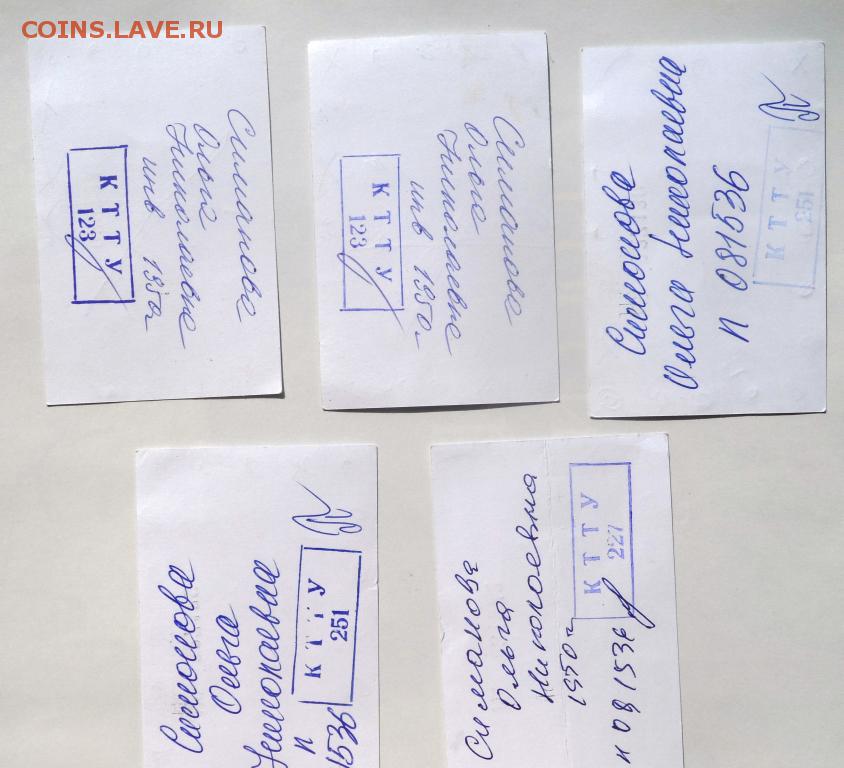 COINS.LAVE.RU
Симонова
Ольга
Николаевна
инв 1950г
КТТУ
123
Симонова
Ольга
Николаевна
инв 1950г
КТТУ
123
Симонова
Ольга Николаевна
п 081536
КТТУ
251
Симонова
Ольга
Николаевна
п
1536
КТТУ
251
Симонова
Ольга
Николаевна
1950г
КТТУ
227
п 081536